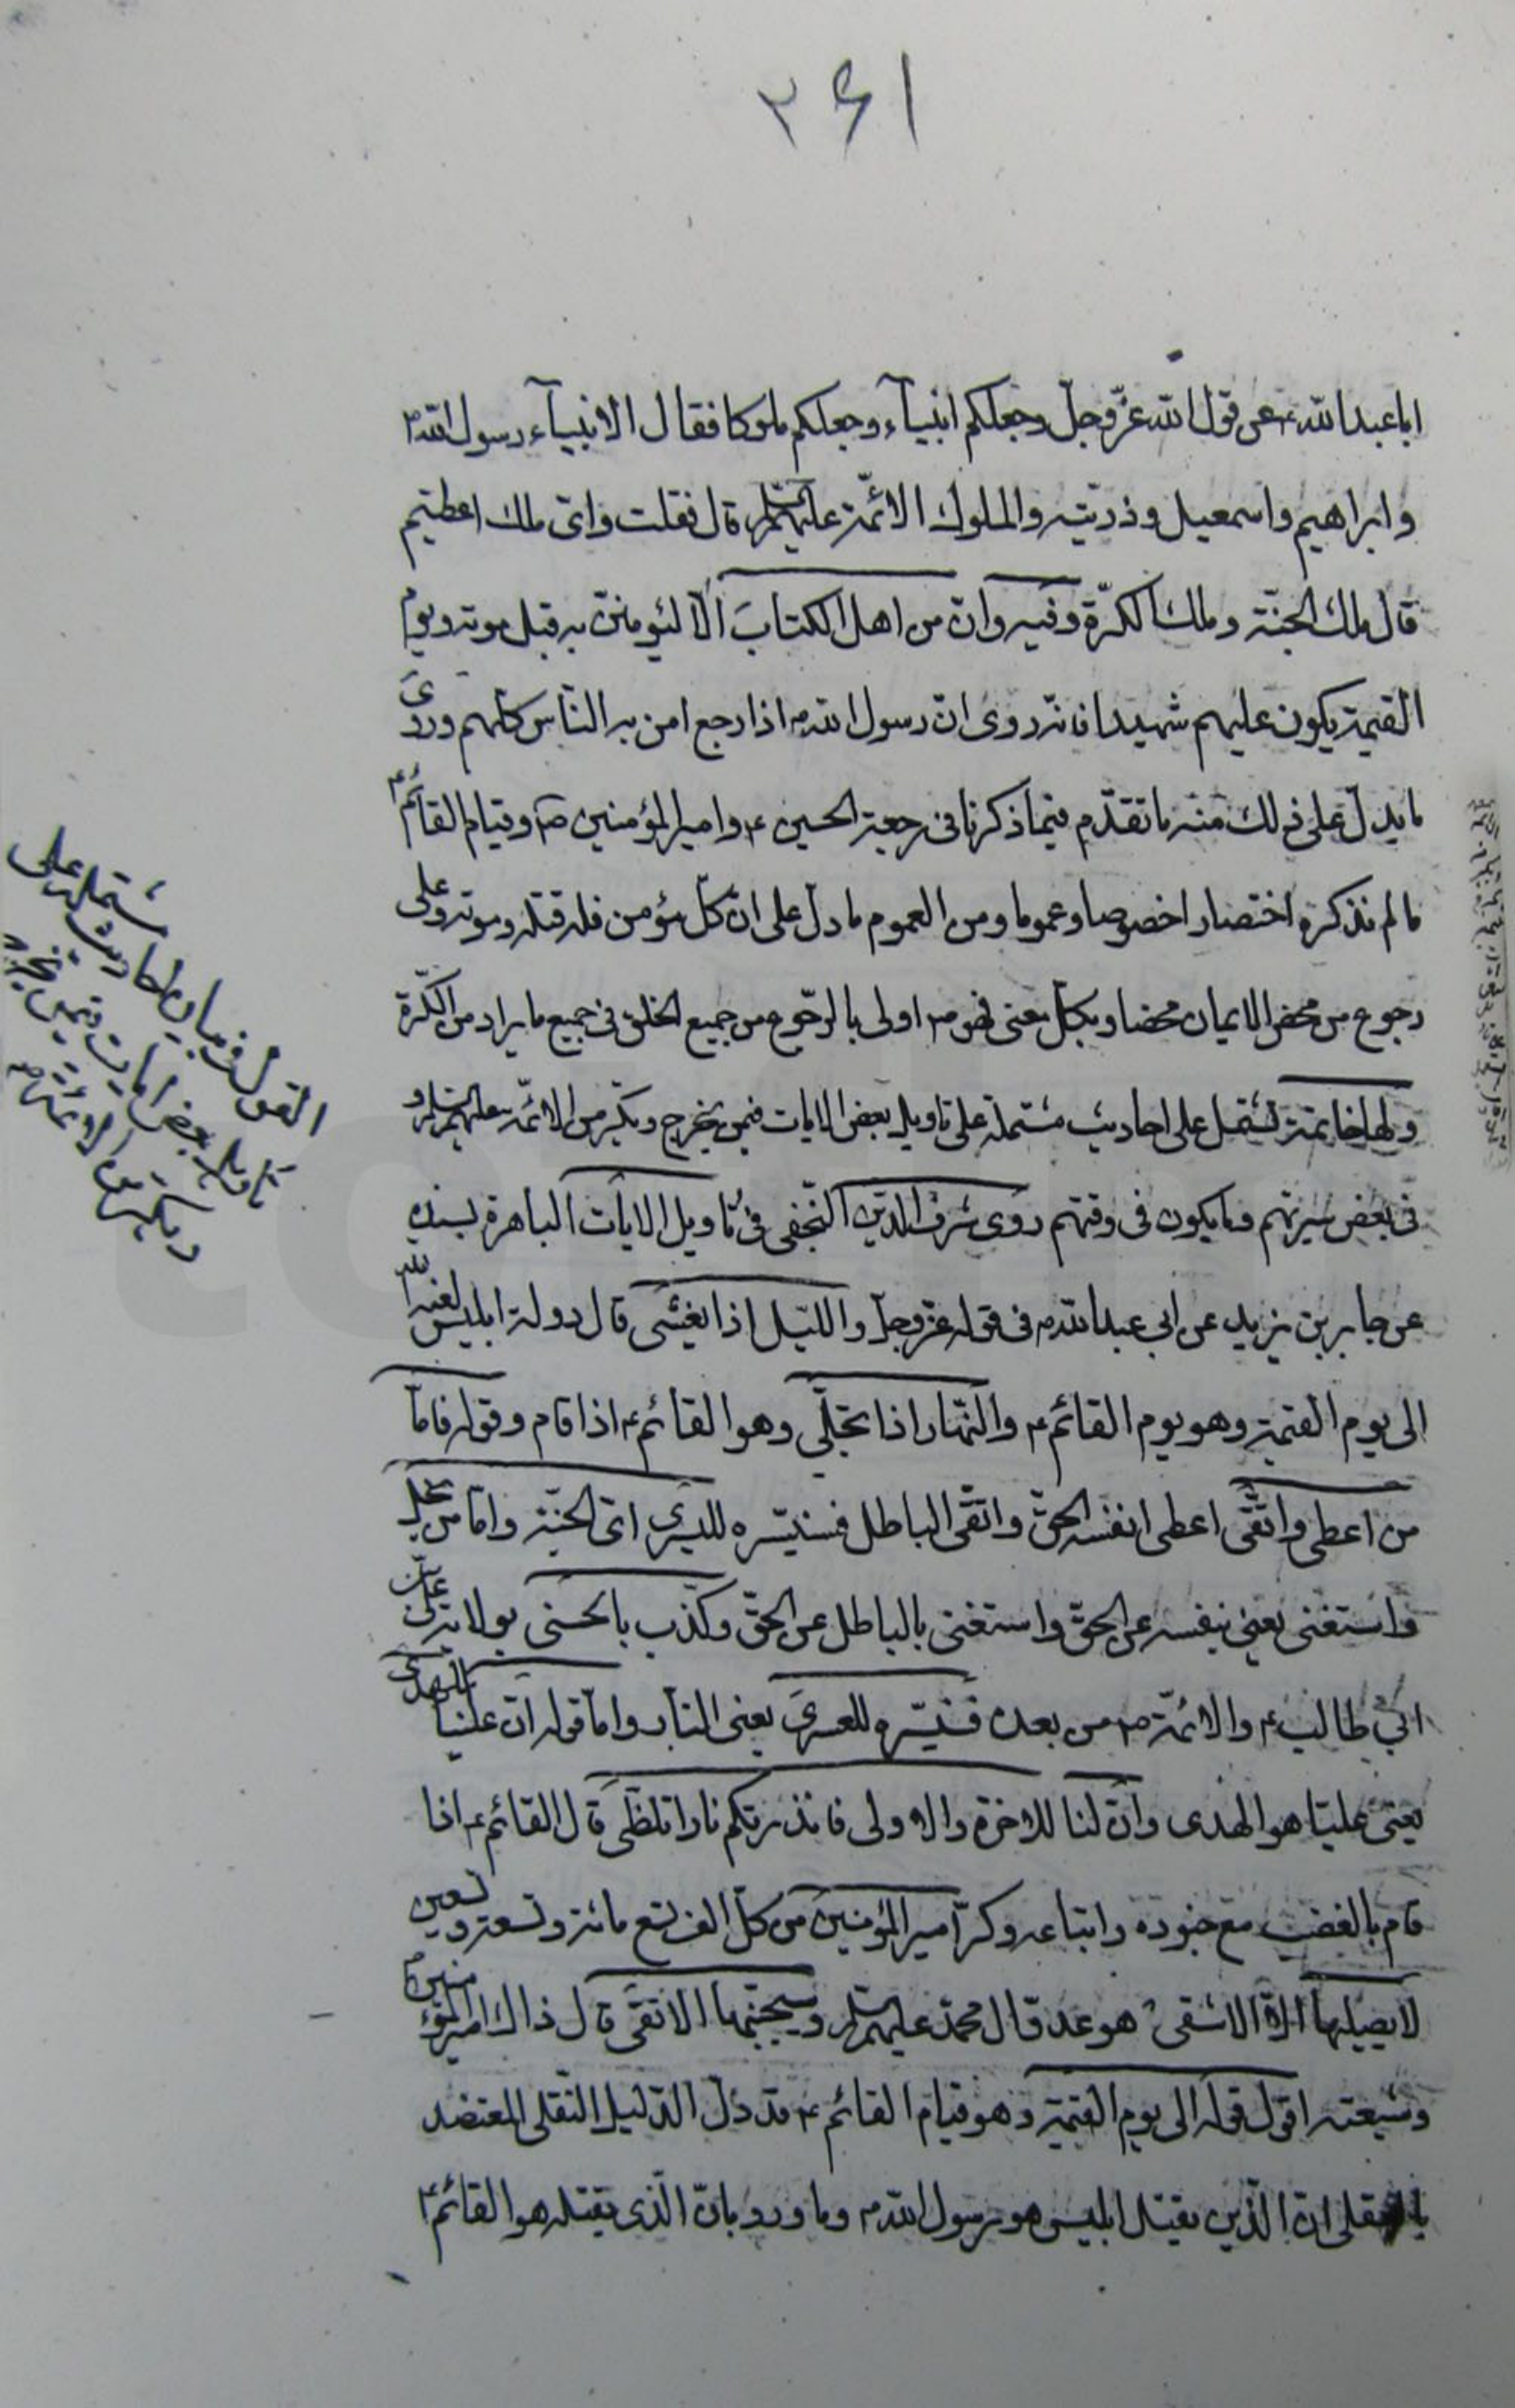 ۲۶۱
ابا عبدالله ع عن قول الله عزّ وجلّ وجعلكم انبيآء وجعلكم ملوكا فقال الانبيآء رسول الله ص
وابراهيم واسمعيل وذريته والملوك الائمّة عليهم السلام قال فقلت واىّ ملك اعطيتم
قال ملك الجنّة وملك الكرّة وفيه وان من اهل الكتاب الّا ليؤمننّ به قبل موته ويوم
القيمة يكون عليهم شهيدا فانّه روى ان رسول الله ص اذا رجع امن به النّاس كلهم وروى
ما يدلّ على ذلك منه ما تقدّم فيما ذكرنا فى رجعة الحسين ع وامير المؤمنين ص وقيام القائم ع
ما لم نذكره اختصارا خصوصا وعموما ومن العموم ما دل على انّ كلّ مؤمن فله قتلة وموتة وعلى
رجوع من محض الايمان محضا وبكلّ معنى فهو ص اولى بالرّجوع من جميع الخلق فى جميع ما يراد من الكرّة
ولها خاتمة تشتمل على احاديث مشتملة على تاويل بعض الايات فيمن يخرج ويكرّ من الائمّة عليهم السلام و
فى بعض سيرتهم وما يكون فى وقتهم روى شرف الدّين النّجفى فى تاويل الايات الباهرة بسنده
عن جابر بن يزيد عن ابى عبدالله ع فى قوله عزّ وجلّ والليل اذا يغشى قال دولة ابليس لعنه الله
الى يوم القيمة وهو يوم القائم ع والنّهار اذا تجلّى وهو القائم ع اذا قام وقوله فامّا
من اعطى واتّقى اعطى نفسه الحقّ واتّقى الباطل فسنيسّره لليسرى اى الجنّة وامّا من بخل
واستغنى يعنى بنفسه عن الحقّ واستغنى بالباطل عن الحقّ وكذّب بالحسنى بولاية علىّ بن
ابي طالب ع والائمّة ص من بعده فسنيسّره للعسرى يعنى النّار وامّا قوله انّ علينا للهدى
يعنى عليّا هو الهدى وانّ لنا للاخرة والاولى فانذرتكم نارا تلظّى قال القائم ع اذا
قام بالغضب مع جنوده واتباعه وكرّ امير المؤمنين من كلّ الف تسع مائة وتسعة وتسعين
لا يصليها الّا الاشقى هو عدو ال محمّد عليهم السلام وسيجنّبها الاتقى قال ذاك امير المؤمنين ع
وشيعته اقول قوله الى يوم القيمة وهو قيام القائم ع قد دلّ الدّليل النّقلى المعتضد
بالعقلى ان الّذى يقتل ابليس هو رسول الله ص وما ورد بانّ الّذى يقتله هو القائم ع
القول فى بيان احاديث مشتملة على
تأويل بعض ايات فيمن يخرج
ويكرّ من الائمّة ص